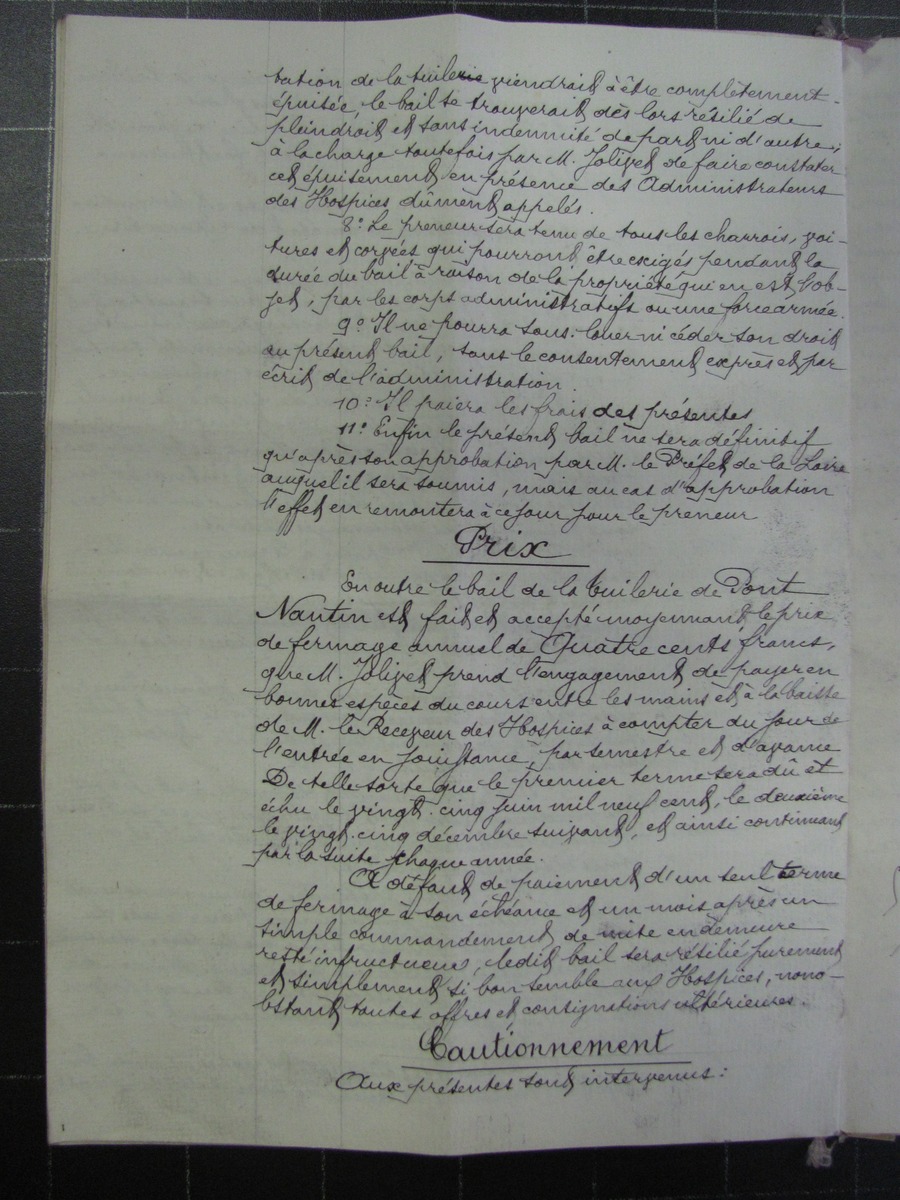 tation de la tuilerie viendrait à être complètement
épuisée, le bail se trouverait dès lors résilié de
plein droit et sans indemnité de part ni d'autre,
à la charge toutefois par M. Jolivet de faire constater
cet épuisement en présence des Administrateurs
des Hospices dûment appelés.
8.° Le preneur sera tenu de tous les charrois, voi-
tures et corvées qui pourront être exigés pendant la
durée du bail à raison de la propriété qui en est l'ob-
jet, par les corps administratifs ou une force armée.
9.° Il ne pourra sous-louer ni céder son droit
au présent bail, sans le consentement exprès et par
écrit de l'administration.
10.° Il paiera les frais des présentes
11.° Enfin le présent bail ne sera définitif
qu'après son approbation par M. le Préfet de la Loire
auquel il sera soumis, mais au cas d'approbation
l'effet en remontera à ce jour pour le preneur
Prix
En outre le bail de la tuilerie de Pont
Nantin est fait et accepté moyennant le prix
de fermage annuel de Quatre cents francs,
que M. Jolivet prend l'engagement de payer en
bonnes espèces du cours entre les mains et à la caisse
de M. le Receveur des Hospices à compter du jour de
l'entrée en jouissance, par semestre et d'avance
De telle sorte que le premier terme sera dû et
échu le vingt-cinq juin mil neuf cent, le deuxième
le vingt-cinq décembre suivant, et ainsi continuant
par la suite chaque année.
A défaut de paiement d'un seul terme
de fermage à son échéance et un mois après un
simple commandement de mise en demeure
resté infructueux, ledit bail sera résilié purement
et simplement si bon semble aux Hospices, nono-
bstant toutes offres et consignations ultérieures.
Cautionnement
Aux présentes sont intervenus: